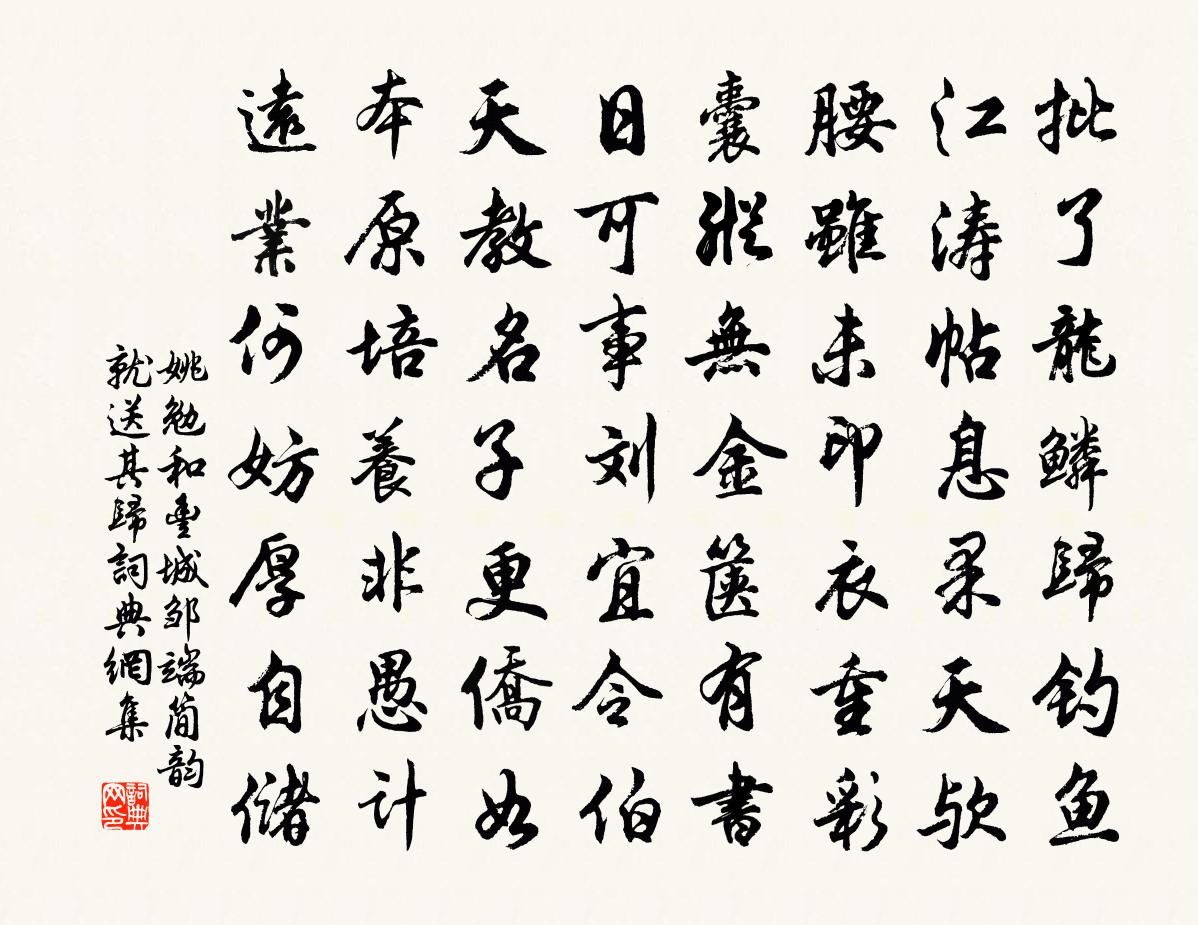 批了龍鱗歸釣魚
江濤帖息柔天欤
腰雖未印衣重彩
囊縱無金篋有書
日可事刘宜令伯
天教名子更僑如
本原培養非愚計
遠業何妨厚自儲
姚勉和豊城邹端简韵
就送其歸詞典網集
詞典网印